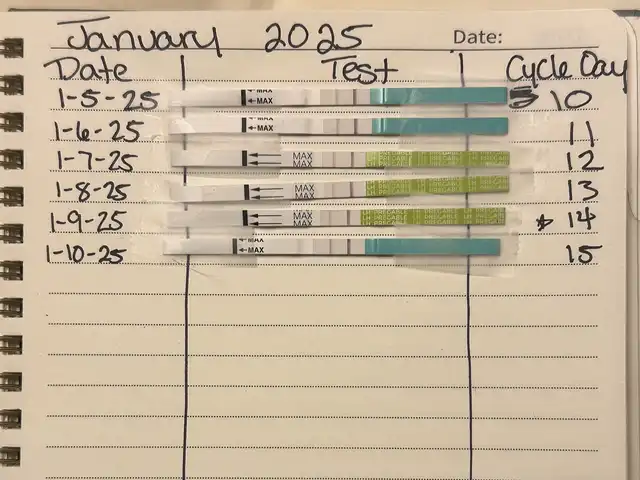 January 2025 Date:
Date Test Cycle Day
1-5-25 MAX MAX 10
1-6-25 MAX MAX 11
1-7-25 MAX MAX 12
1-8-25 MAX MAX 13
1-9-25 MAX MAX 14
1-10-25 MAX MAX 15